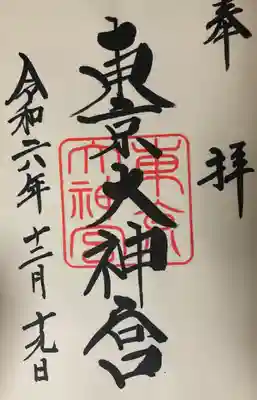 奉拝
東京大神宮
東京大神宮
令和六年十二月十九日